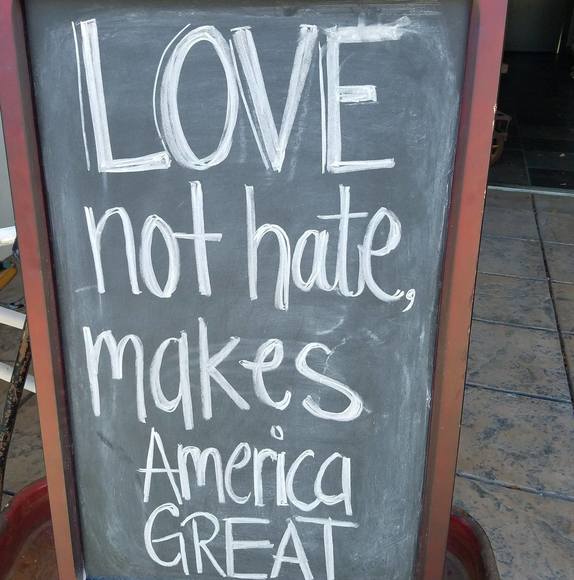 LOVE
not hate,
makes
America
GREAT